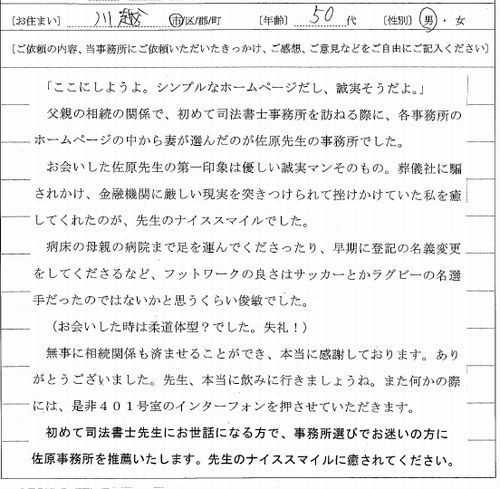 【お住まい】 川越 市/区/郡/町 【年齢】 50 代 【性別】 男・女
［ご依頼の内容、当事務所にご依頼いただいたきっかけ、ご感想、ご意見などをご自由にご記入ください］
「ここにしようよ。シンプルなホームページだし、誠実そうだよ。」
父親の相続の関係で、初めて司法書士事務所を訪ねる際に、各事務所の
ホームページの中から妻が選んだのが佐原先生の事務所でした。
お会いした佐原先生の第一印象は優しい誠実マンそのもの。葬儀社に騙
されかけ、金融機関に厳しい現実を突きつけられて挫けかけていた私を癒
してくれたのが、先生のナイススマイルでした。
病床の母親の病院まで足を運んでくださったり、早期に登記の名義変更
をしてくださるなど、フットワークの良さはサッカーとかラグビーの名選
手だったのではないかと思うくらい俊敏でした。
（お会いした時は柔道体型？でした。失礼！）
無事に相続関係も済ませることができ、本当に感謝しております。あり
がとうございました。先生、本当に飲みに行きましょうね。また何かの際
には、是非４０１号室のインターフォンを押させていただきます。
初めて司法書士先生にお世話になる方で、事務所選びでお迷いの方に
佐原事務所を推薦いたします。先生のナイススマイルに癒されてください。